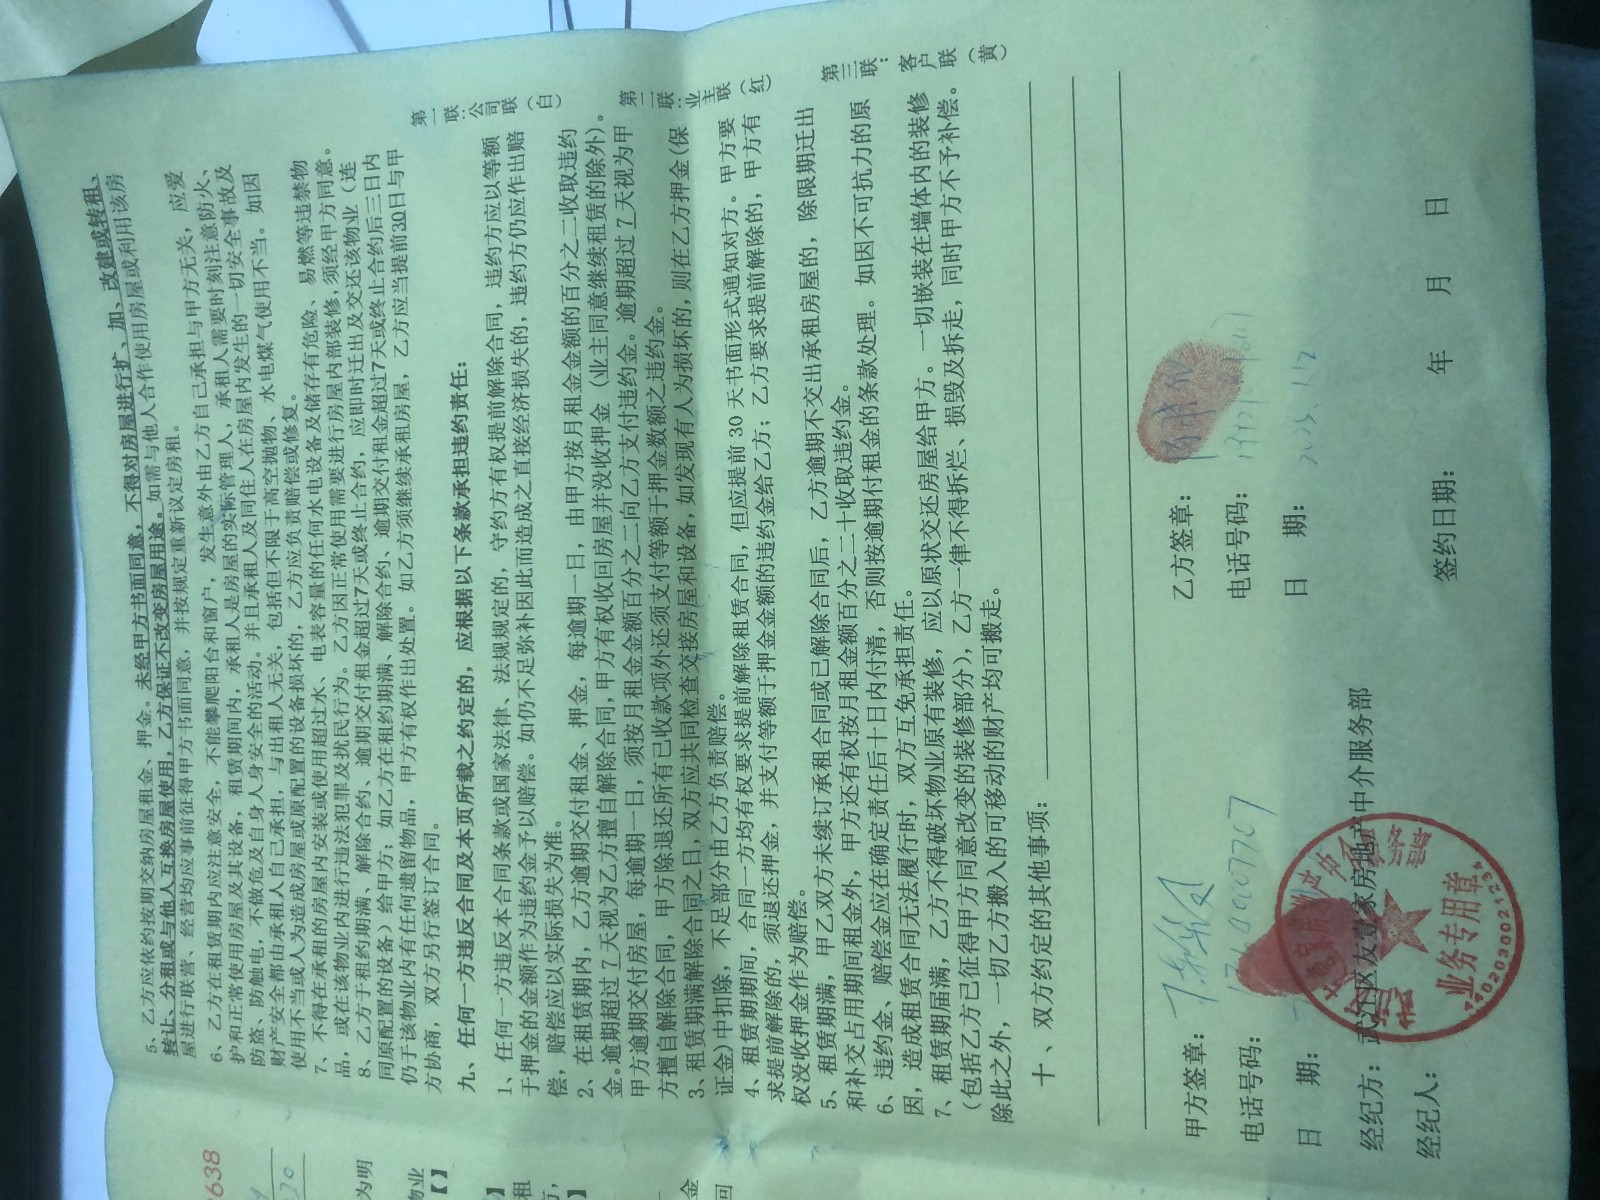 5、乙方应依约按期交纳房屋租金、押金。未经甲方书面同意，不得对房屋进行扩、加、改建或转租、
转让、分租或与他人互换房屋使用，乙方保证不改变房屋用途。如需与他人合作使用房屋或利用该房
屋进行联营、经营均应事前征得甲方书面同意，并按规定重新议定房租。
6、乙方在租赁期内应注意安全，不能攀爬阳台和窗户，发生意外由乙方自己承担与甲方无关，应爱
护和正常使用房屋及其设备，租赁期间内，承租人是房屋的实际管理人，承租人需要时刻注意防火、
防盗、防触电，不做危及自身人身安全的活动。并且承租人及同住人在房屋内发生的一切安全事故及
财产安全都由承租人自己承担，与出租人无关，包括但不限于高空抛物、水电煤气使用不当。如因
使用不当或人为造成房屋或原配置的设备损坏的，乙方应负责赔偿或修复。
7、不得在承租的房屋内安装或使用超过水、电表容量的任何水电设备及储存有危险、易燃等违禁物
品，或在该物业内进行违法犯罪及扰民行为。乙方因正常使用需要进行房屋内部装修,须经甲方同意。
8、乙方于租约期满、解除合约、逾期交付租金超过7天或终止合约，应即时迁出及交还该物业（连
同原配置的设备）给甲方；如乙方在租约期满、解除合约、逾期交付租金超过7天或终止合约后三日内
仍于该物业内有任何遗留物品，甲方有权作出处置。如乙方须继续承租房屋，乙方应当提前30日与甲
方协商，双方另行签订合同。
九、任何一方违反合同及本页所载之约定的，应根据以下条款承担违约责任：
1、任何一方违反本合同条款或国家法律、法规规定的，守约方有权提前解除合同，违约方应以等额
于押金的金额作为违约金予以赔偿。如仍不足弥补因此而造成之直接经济损失的，违约方仍应作出赔
偿，赔偿应以实际损失为准。
2、在租赁期内，乙方逾期交付租金、押金，每逾期一日，由甲方按月租金金额的百分之二收取违约
金。逾期超过 7 天视为乙方擅自解除合同,甲方有权收回房屋并没收押金（业主同意继续租赁的除外）。
甲方逾期交付房屋，每逾期一日，须按月租金金额百分之二向乙方支付违约金。逾期超过 7 天视为甲
方擅自解除合同，甲方除退还所有已收款项外还须支付等额于押金数额之违约金。
3、租赁期满解除合同之日，双方应共同检查交接房屋和设备，如发现有人为损坏的，则在乙方押金(保
证金)中扣除，不足部分由乙方负责赔偿。
4、租赁期期间，合同一方均有权要求提前解除租赁合同，但应提前 30 天书面形式通知对方。甲方要
求提前解除的，须退还押金，并支付等额于押金金额的违约金给乙方；乙方要求提前解除的，甲方有
权没收押金作为赔偿。
5、租赁期满，甲乙双方未续订承租合同或已解除合同后，乙方逾期不交出承租房屋的，除限期迁出
和补交占用期间租金外，甲方还有权按月租金额百分之二十收取违约金。
6、违约金、赔偿金应在确定责任后十日内付清，否则按逾期付租金的条款处理。如因不可抗力的原
因，造成租赁合同无法履行时，双方互免承担责任。
7、租赁期届满，乙方不得破坏物业原有装修，应以原状交还房屋给甲方。一切嵌装在墙体内的装修
（包括乙方已征得甲方同意改变的装修部分），乙方一律不得拆烂、损毁及拆走，同时甲方不予补偿。
除此之外，一切乙方搬入的可移动的财产均可搬走。
十、双方约定的其他事项：
甲方签章：
乙方签章：
电话号码：
电话号码：
日 期：
日 期：
经纪方：武江区友壹家房地产中介服务部
经纪人：
签约日期： 年 月 日
第一联：公司联（白）
第二联：业主联（红）
第三联：客户联（黄）
业务专用章
638
为明
物业
【】
租
金
回